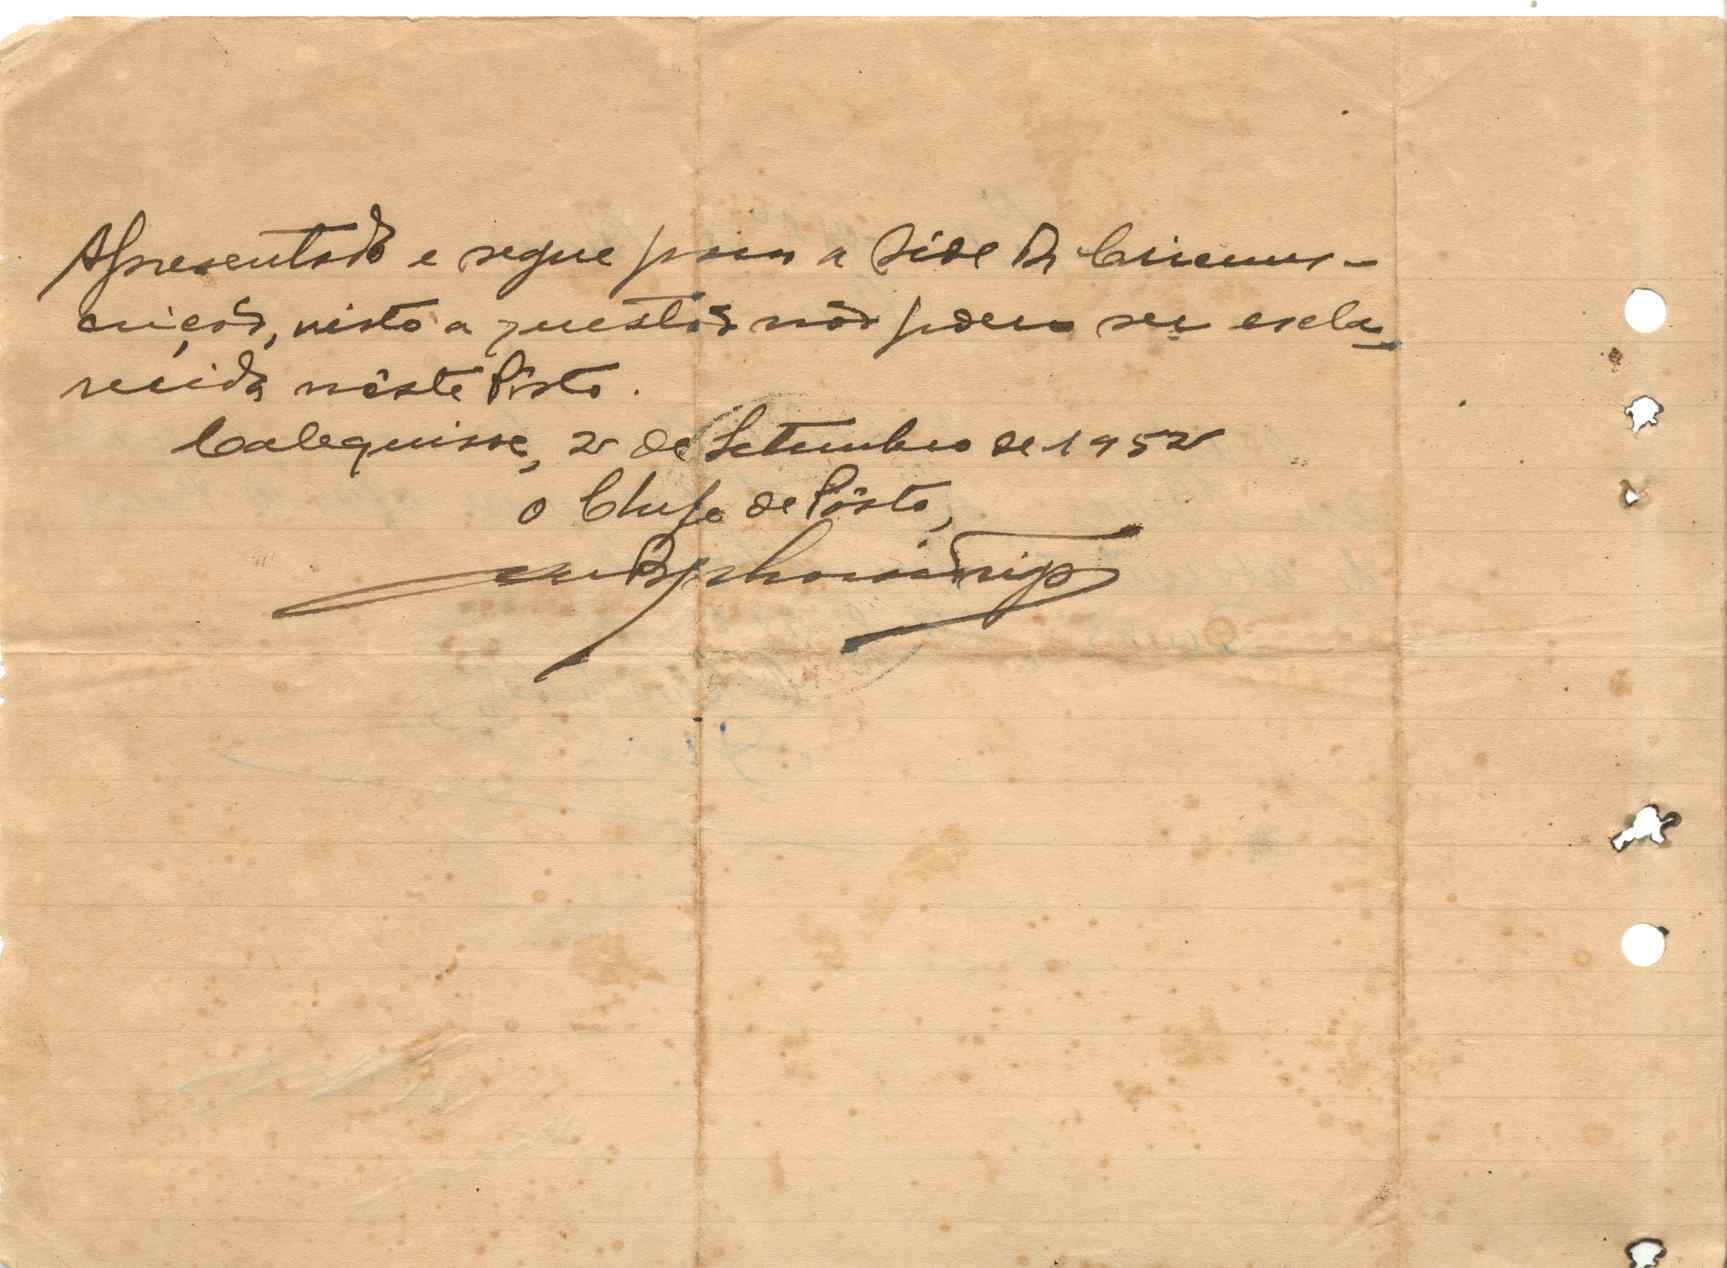 Apresentado e segue para a Séde da Circuns-
crição, visto a questão não poder ser escla-
recida nêste Pôsto.
Calequisse, 2 de Setembro de 1952
O Chefe de Pôsto,